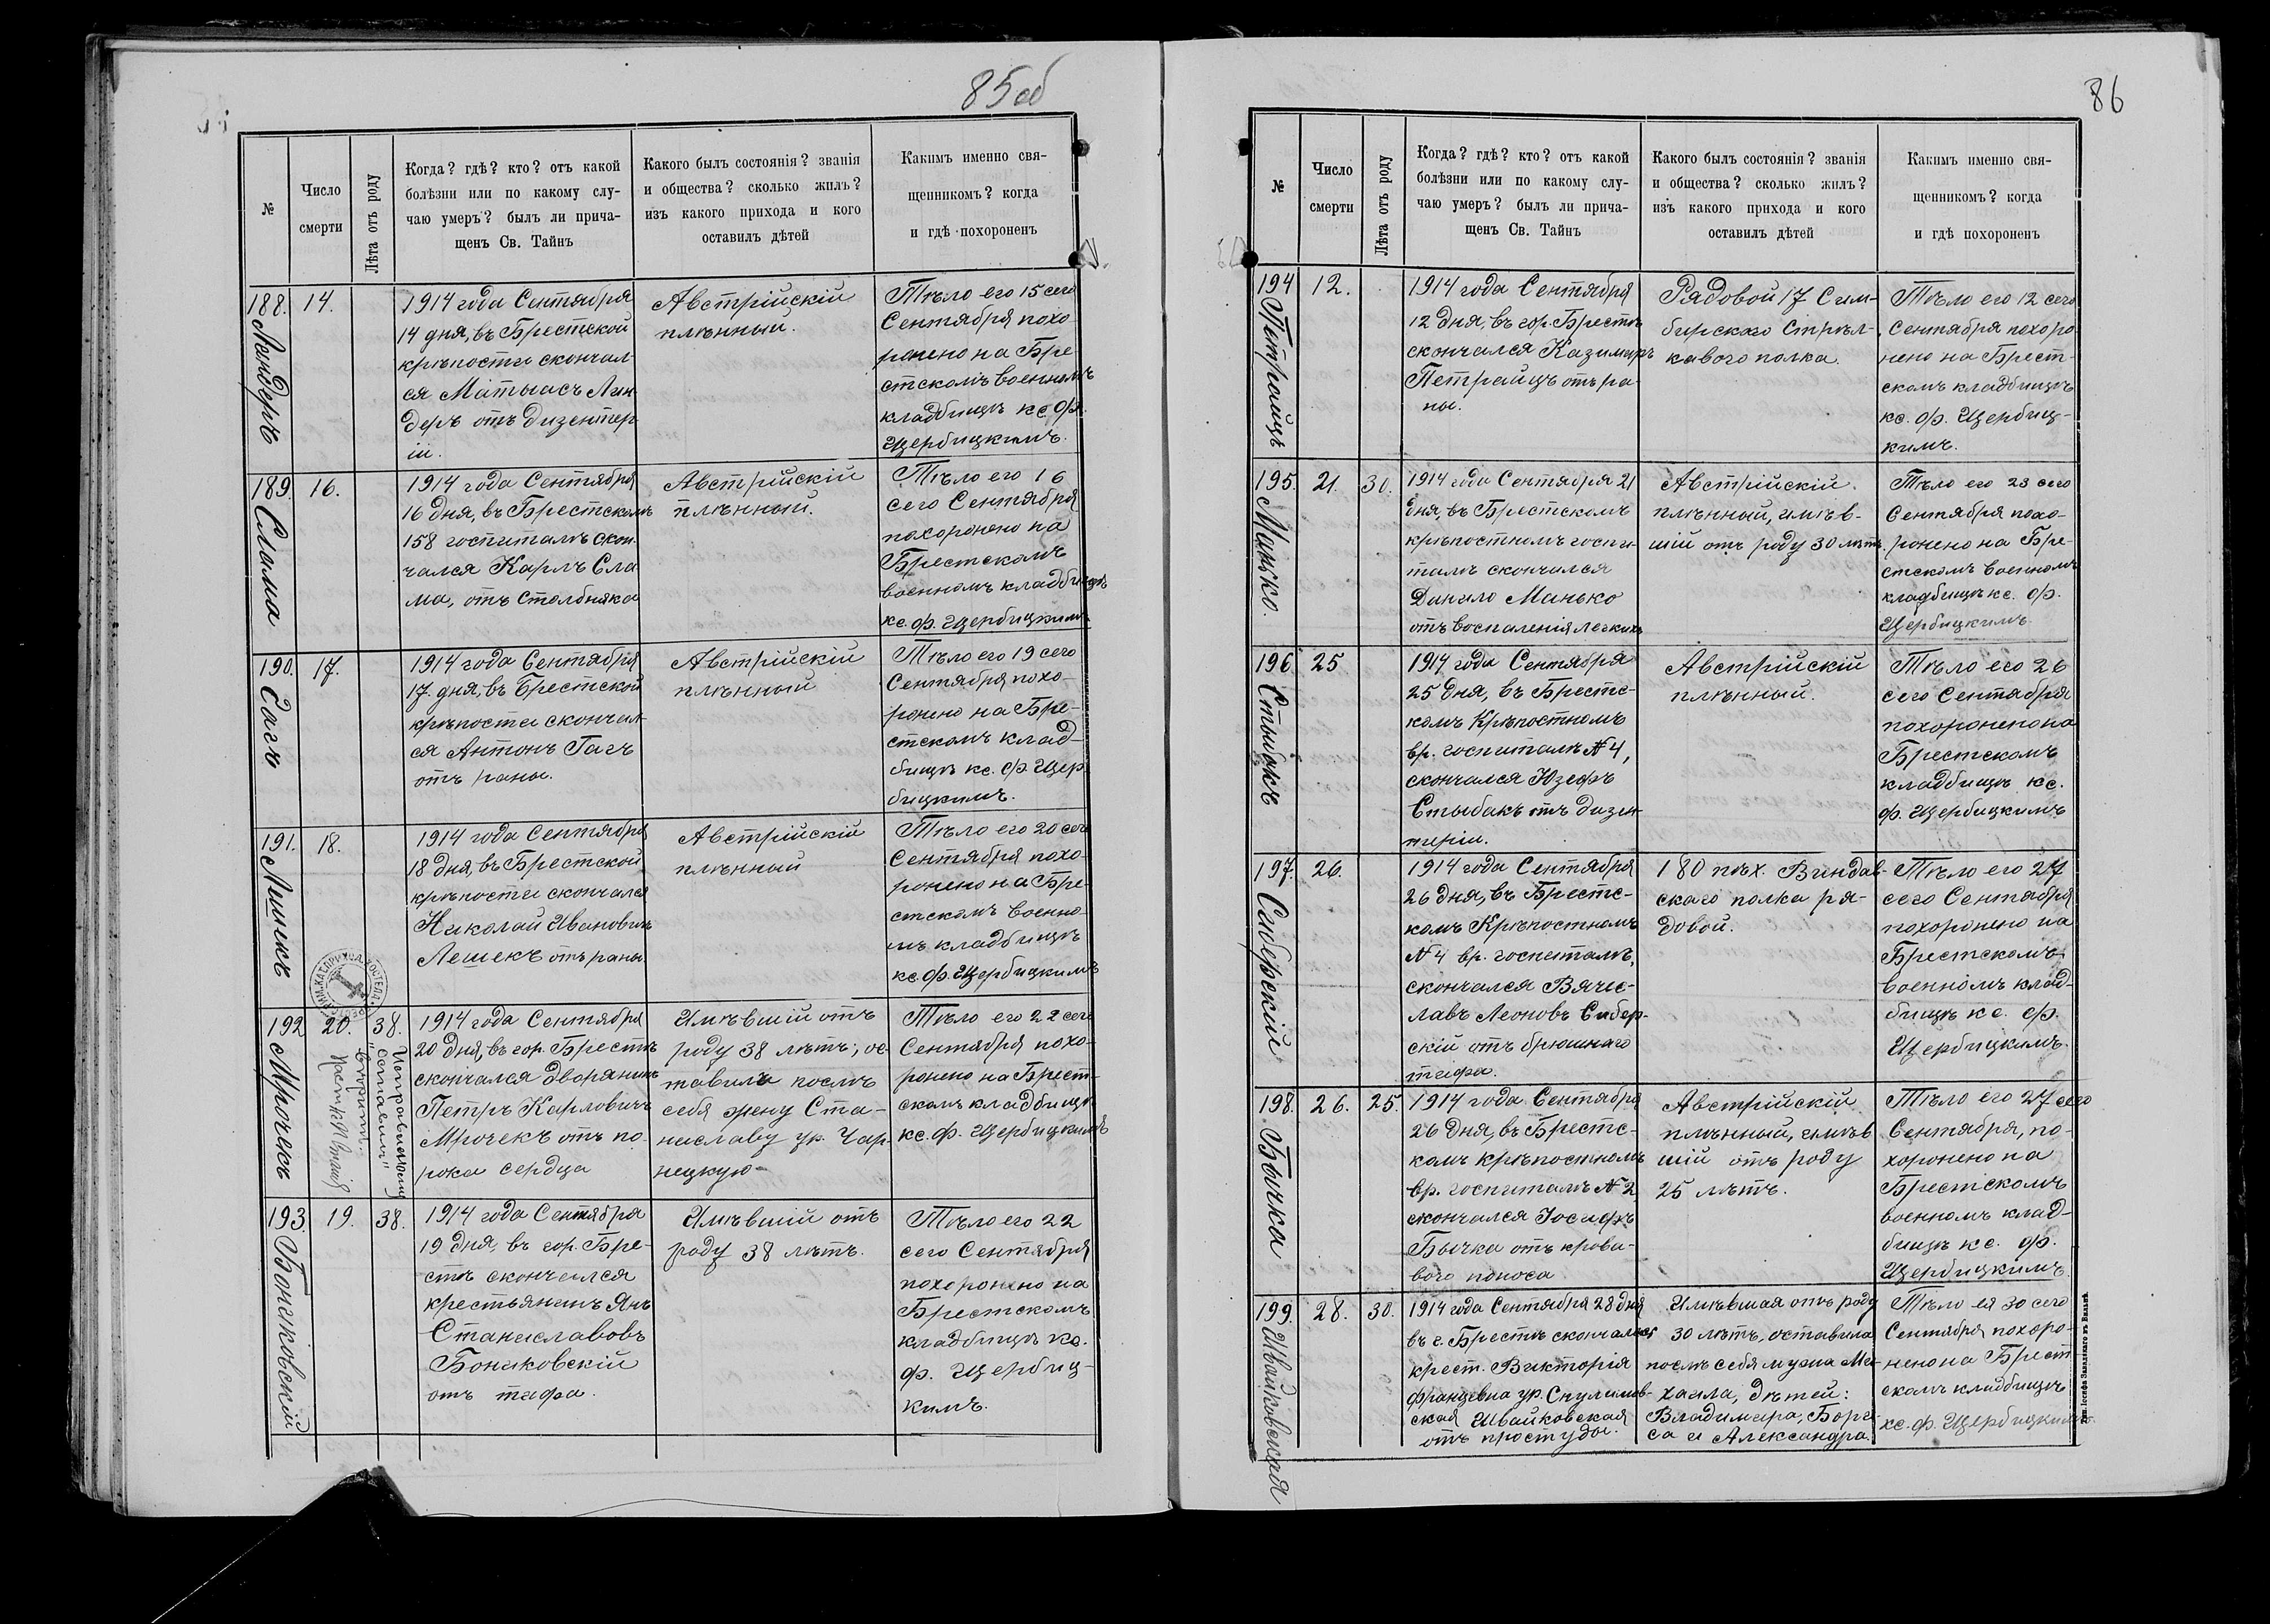 85 об
№
Число
смерти
Лѣта отъ роду
Когда? гдѣ? кто? отъ какой
болѣзни или по какому слу-
чаю умеръ? былъ ли прича-
щенъ Св. Тайнъ
Какого былъ состоянія? званія
и общества? сколько жилъ?
изъ какого прихода и кого
оставилъ дѣтей
Какимъ именно свя-
щенникомъ? когда
и гдѣ похороненъ
188.
Линдеръ
14.
1914 года Сентября
14 дня, въ Брестской
крѣпости скончал-
ся Матыасъ Лин-
деръ отъ дизентер
іи.
Австрійскій
плѣнный.
Тѣло его 15 сего
Сентября похо-
ронено на Бре-
стскомъ военномъ
кладбищѣ кс. ф.
Щербицкимъ.
189.
Слама
16.
1914 года Сентября
16 дня, въ Брестскомъ
158 госпиталѣ скон-
чался Карлъ Сла
ма, отъ столбняка
Австрійскій
плѣнный.
Тѣло его 16
сего Сентября
похоронено на
Брестскомъ
военномъ кладбищѣ
кс. ф. Щербицкимъ.
190.
Гагъ
17.
1914 года Сентября
17. дня, въ Брестской
крѣпости скончал-
ся Антонъ Гагъ
отъ раны.
Австрійскій
плѣнный
Тѣло его 19 сего
Сентября похо-
ронено на Бре-
стскомъ клад-
бищѣ кс. ф. Щер-
бицкимъ.
191.
18.
1914 года Сентября
18 дня, въ Брестской
крѣпости скончался
Николай Ивановичъ
Лешекъ отъ раны
Австрійскій
плѣнный
Тѣло его 20 сего
Сентября похо-
ронено на Бре-
стскомъ военно-
мъ кладбищѣ
кс. ф. Щербицкимъ
192
Мрочекъ
20.
38.
1914 года Сентября
20 дня, въ гор. Брестѣ
скончался дворянинъ
Петръ Карловичъ
Мрочекъ отъ по-
рока сердца
Имѣвшій отъ
роду 38 лѣтъ; ос-
тавилъ послѣ
себя жену Ста-
ниславу ур. Чар-
нецкую
Тѣло его 22 сего
Сентября похо-
ронено на Брест-
скомъ кладбищѣ
кс. ф. Щербицкимъ
193.
Бониковскій
19.
38.
1914 года Сентября
19 дня, въ гор. Бре-
стѣ скончался
крестьянинъ Янъ
Станиславовъ
Бониковскій
отъ тифа.
Имѣвшій отъ
роду 38 лѣтъ.
Тѣло его 22
сего Сентября
похоронено на
Брестскомъ
кладбищѣ кс.
ф. Щербиц-
кимъ.
86
№
Число
смерти
Лѣта отъ роду
Когда? гдѣ? кто? отъ какой
болѣзни или по какому слу-
чаю умеръ? былъ ли прича-
щенъ Св. Тайнъ
Какого былъ состоянія? званія
и общества? сколько жилъ?
изъ какого прихода и кого
оставилъ дѣтей
Какимъ именно свя-
щенникомъ? когда
и гдѣ похороненъ
194
Петрайцъ
12.
1914 года Сентября
12 дня, въ гор. Брестѣ
скончался Казимиръ
Петрайцъ отъ ра-
ны.
Рядовой 17 Сим-
бирскаго Стрѣл-
коваго полка.
Тѣло его 12 сего
Сентября похоро
нено на Брест-
скомъ кладбищѣ
кс. ф. Щербиц-
кимъ.
195.
Манько.
21.
30.
1914 года Сентября 21
дня, въ Брестскомъ
крѣпостномъ госпи-
талѣ скончался
Данило Манько
отъ воспаленія легкихъ
Австрійскій
плѣнный, имѣв-
шій отъ роду 30 лѣтъ.
Тѣло его 23 сего
Сентября похо-
ронено на Бре-
стскомъ военномъ
кладбищѣ кс. ф.
Щербицкимъ.
196
Стыбакъ
25
1914 года Сентября
25 дня, въ Брестс-
комъ Крѣпостномъ
вр. госпиталѣ № 4,
скончался Юзефъ
Стыбакъ отъ дизен-
теріи.
Австрійскій
плѣнный.
Тѣло его 26
сего Сентября
похоронено на
Брестскомъ
кладбищѣ кс.
ф. Щербицкимъ
197.
Сиберскій
26.
1914 года Сентября
26 дня, въ Брестс-
комъ Крѣпостномъ
№ 4 вр. госпиталѣ,
скончался Вячес-
лавъ Леоновъ Сибер-
скій отъ брюшного
тифа.
180 пѣх. Виндав-
скаго полка ря-
довой.
Тѣло его 27
сего Сентября
похоронено на
Брестскомъ
военномъ клад-
бищѣ кс. ф.
Щербицкимъ.
198.
Бычка
26.
25.
1914 года Сентября
26 дня, въ Брестс-
комъ крѣпостномъ
вр. госпиталѣ № 2
скончался Іосифъ
Бычка отъ крова-
вого поноса
Австрійскій
плѣнный, имѣв
шій отъ роду
25 лѣтъ.
Тѣло его 27 сего
Сентября, по-
хоронено на
Брестскомъ
военномъ клад-
бищѣ кс. ф.
Щербицкимъ.
199.
Ивайковская
28.
30.
1914 года Сентября 28 дня
въ г. Брестѣ скончалась
крест. Викторія
Францевна ур.
ская Ивайковская
отъ простуды.
Имѣвшая отъ роду
30 лѣтъ, оставила
послѣ себя мужа Ми-
хаила, дѣтей:
Владимира, Бори-
са и Александра.
Тѣло ея 30 сего
Сентября похоро-
нено на Брест
скомъ кладбищѣ
кс. ф. Щербицкимъ.
Тип. Іосифа Завадзкаго въ Вильнѣ.